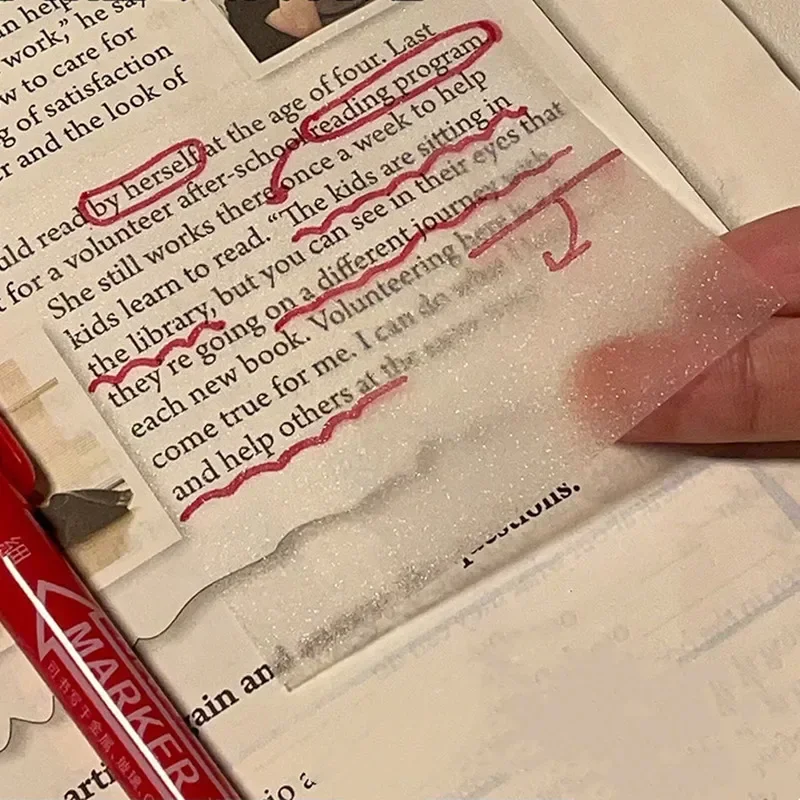 an help
work," he say
w to care for
g of satisfaction
r and the look of
uld read by herself at the age of four. Last
for a volunteer after-school reading program.
She still works there once a week to help
kids learn to read. "The kids are sitting in
the library, but you can see in their eyes that
they're going on a different journey with
each new book. Volunteering here is
come true for me. I can do what I
and help others at the same
questions.
gain an
arti
io a
細
MARKER
可书写于金属、玻璃